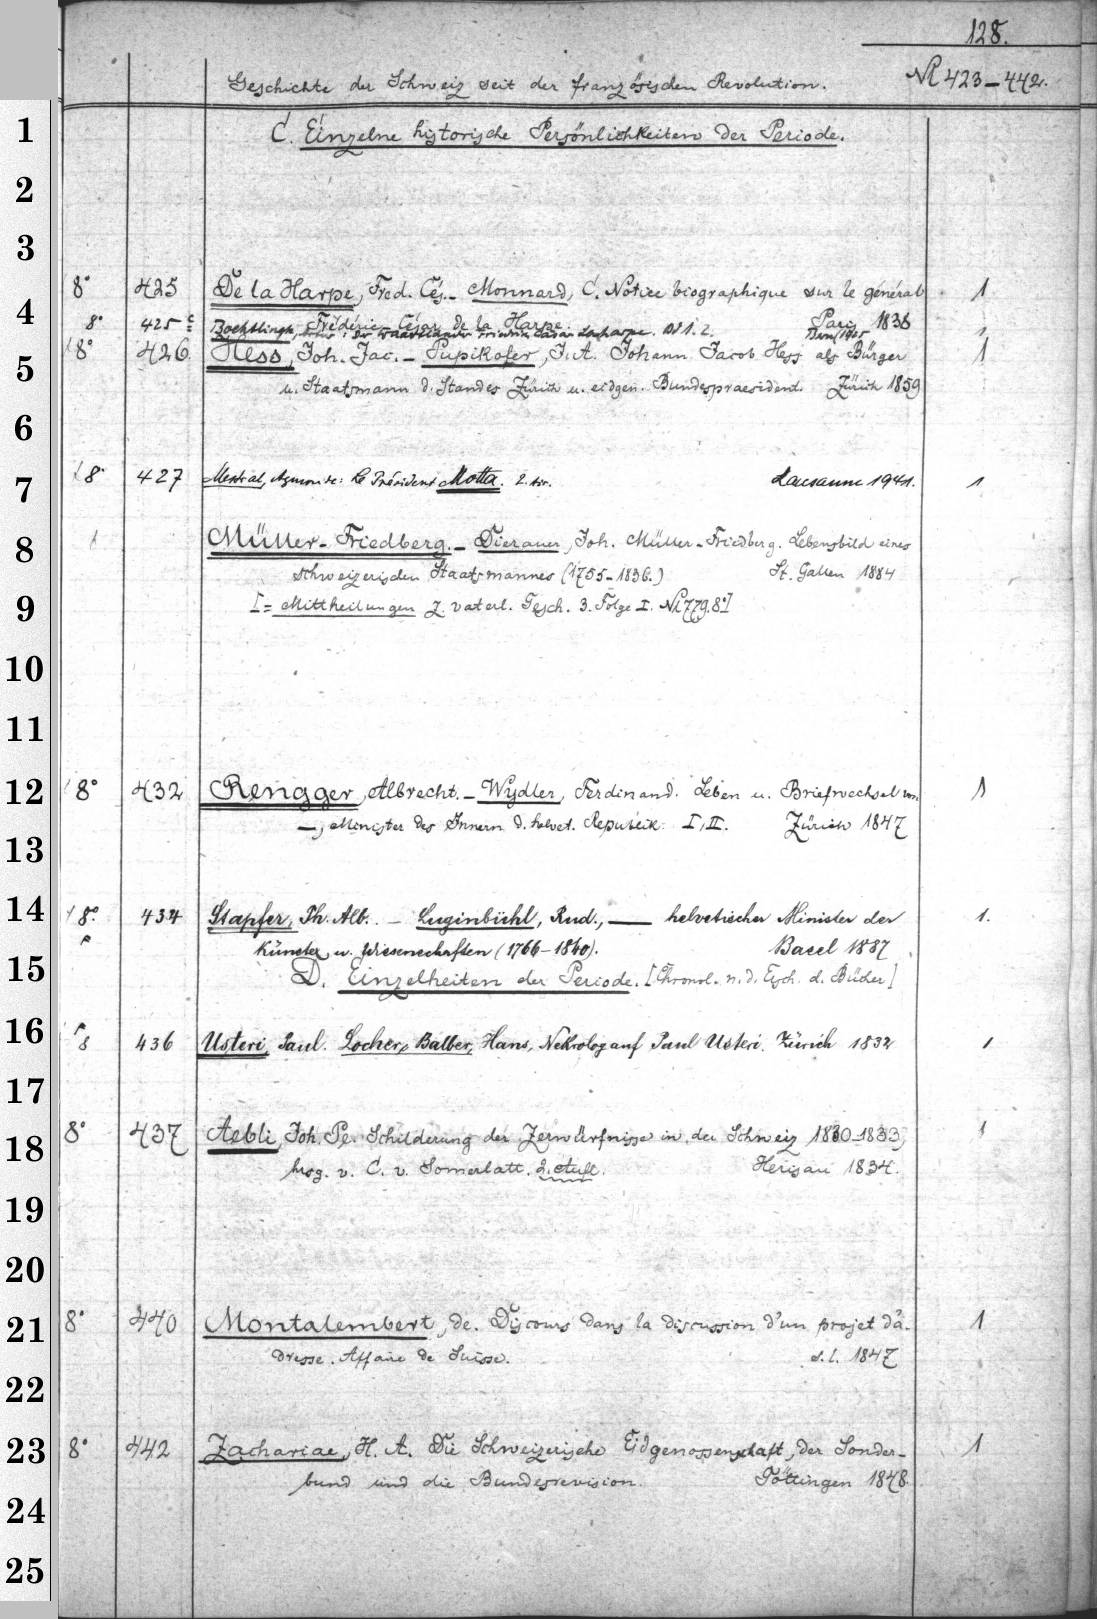 128.
Geschichte der Schweiz seit der französischen Revolution. № 423–442.
1 C. Einzelne historische Persönlichkeiten der Periode.
2
3
8° 425 De la Harpe, Fred. Cés. – Monnard, C. Notice biographique sur le général 1
4 Frédéric César de la Harpe. Paris 1838
8° 425 c Boehtlingk, Der Waadtländer Friedrich Cäsar Laharpe. Bd 1. 2. Bern 1925 1
8° 426 Hess, Joh. Jac. – Pupikofer, J. A. Johann Jacob Hess als Bürger 1
5 u. Staatsmann d. Standes Zürich u. eidgen. Bundespraesident. Zürich 1859
6
7 8° 427 Mestral, Aymon de: Le Président Motta. 2. tir. Lausanne 1941. 1
8 Müller-Friedberg. – Dierauer, Joh. Müller-Friedberg. Lebensbild eines
schweizerischen Staatsmannes (1755–1836.) St. Gallen 1884
9 [= Mittheilungen z. vaterl. Gesch. 3. Folge I. № 779. 8°]
10
11
12 8° 432 Rengger, Albrecht. – Wydler, Ferdinand. Leben u. Briefwechsel von 1
—, Minister des Innern d. helvet. Republik. I, II. Zürich 1847
13
14 8° 434 Stapfer, Ph. Alb. – Luginbühl, Rud., — helvetischer Minister der 1.
Künste u. Wissenschaften (1766–1840). Basel 1887
15 D. Einzelheiten der Periode. [Chronol. n. d. Ersch. d. Bücher]
16 8 436 Usteri, Paul. Locher, Balber, Hans, Nekrolog auf Paul Usteri. Zürich 1832 1
17
18 8° 437 Aebli, Joh. Pe. Schilderung der Zerwürfnisse in der Schweiz 1830–1833, 1
hrsg. v. C. v. Somerlatt. 2. Aufl. Herisau 1834.
19
20
21 8° 440 Montalembert, de. Discours dans la discussion d'un projet d'a- 1
dresse. Affaire de Suisse. s. l. 1847
22
23 8° 442 Zachariae, H. A. Die Schweizerische Eidgenossenschaft, der Sonder- 1
bund und die Bundesrevision. Göttingen 1848.
24
25